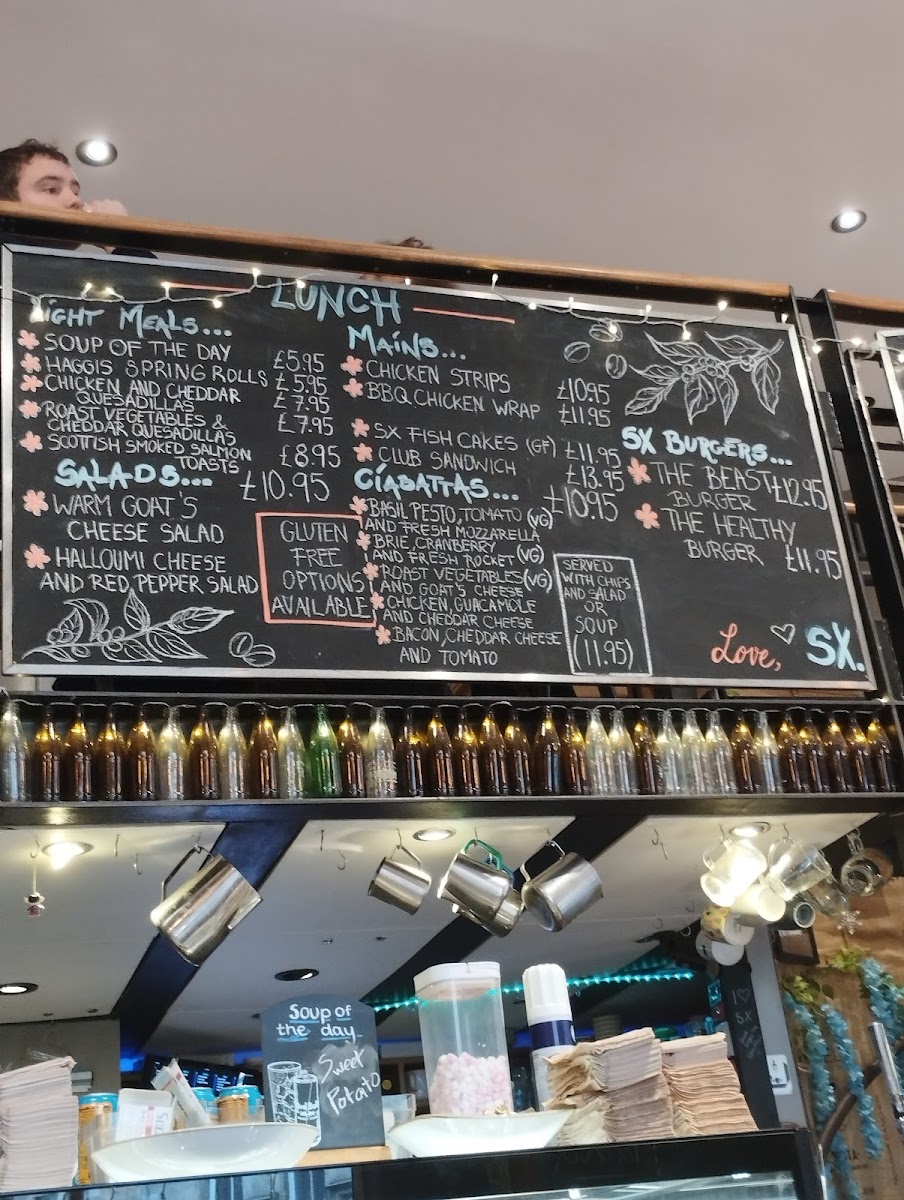 LUNCH
LIGHT MEALS...
SOUP OF THE DAY £5.95
HAGGIS SPRING ROLLS £5.95
CHICKEN AND CHEDDAR
QUESADILLAS £7.95
ROAST VEGETABLES &
CHEDDAR QUESADILLAS £7.95
SCOTTISH SMOKED SALMON
TOASTS £8.95
SALADS... £10.95
WARM GOAT'S
CHEESE SALAD
HALLOUMI CHEESE
AND RED PEPPER SALAD
GLUTEN
FREE
OPTIONS
AVAILABLE
MAINS...
CHICKEN STRIPS £10.95
BBQ CHICKEN WRAP £11.95
SX FISH CAKES (GF) £11.95
CLUB SANDWICH £13.95
CIABATTAS... £10.95
BASIL PESTO, TOMATO (VG)
AND FRESH MOZZARELLA
BRIE, CRANBERRY
AND FRESH ROCKET (VG)
ROAST VEGETABLES (VG)
AND GOAT'S CHEESE
CHICKEN, GUACAMOLE
AND CHEDDAR CHEESE
BACON, CHEDDAR CHEESE
AND TOMATO
SERVED
WITH CHIPS
AND SALAD
OR
SOUP
(11.95)
SX BURGERS...
THE BEAST £12.95
BURGER
THE HEALTHY
BURGER £11.95
Love, SX.
Soup of
the day
Sweet
Potato
I ♡
SX